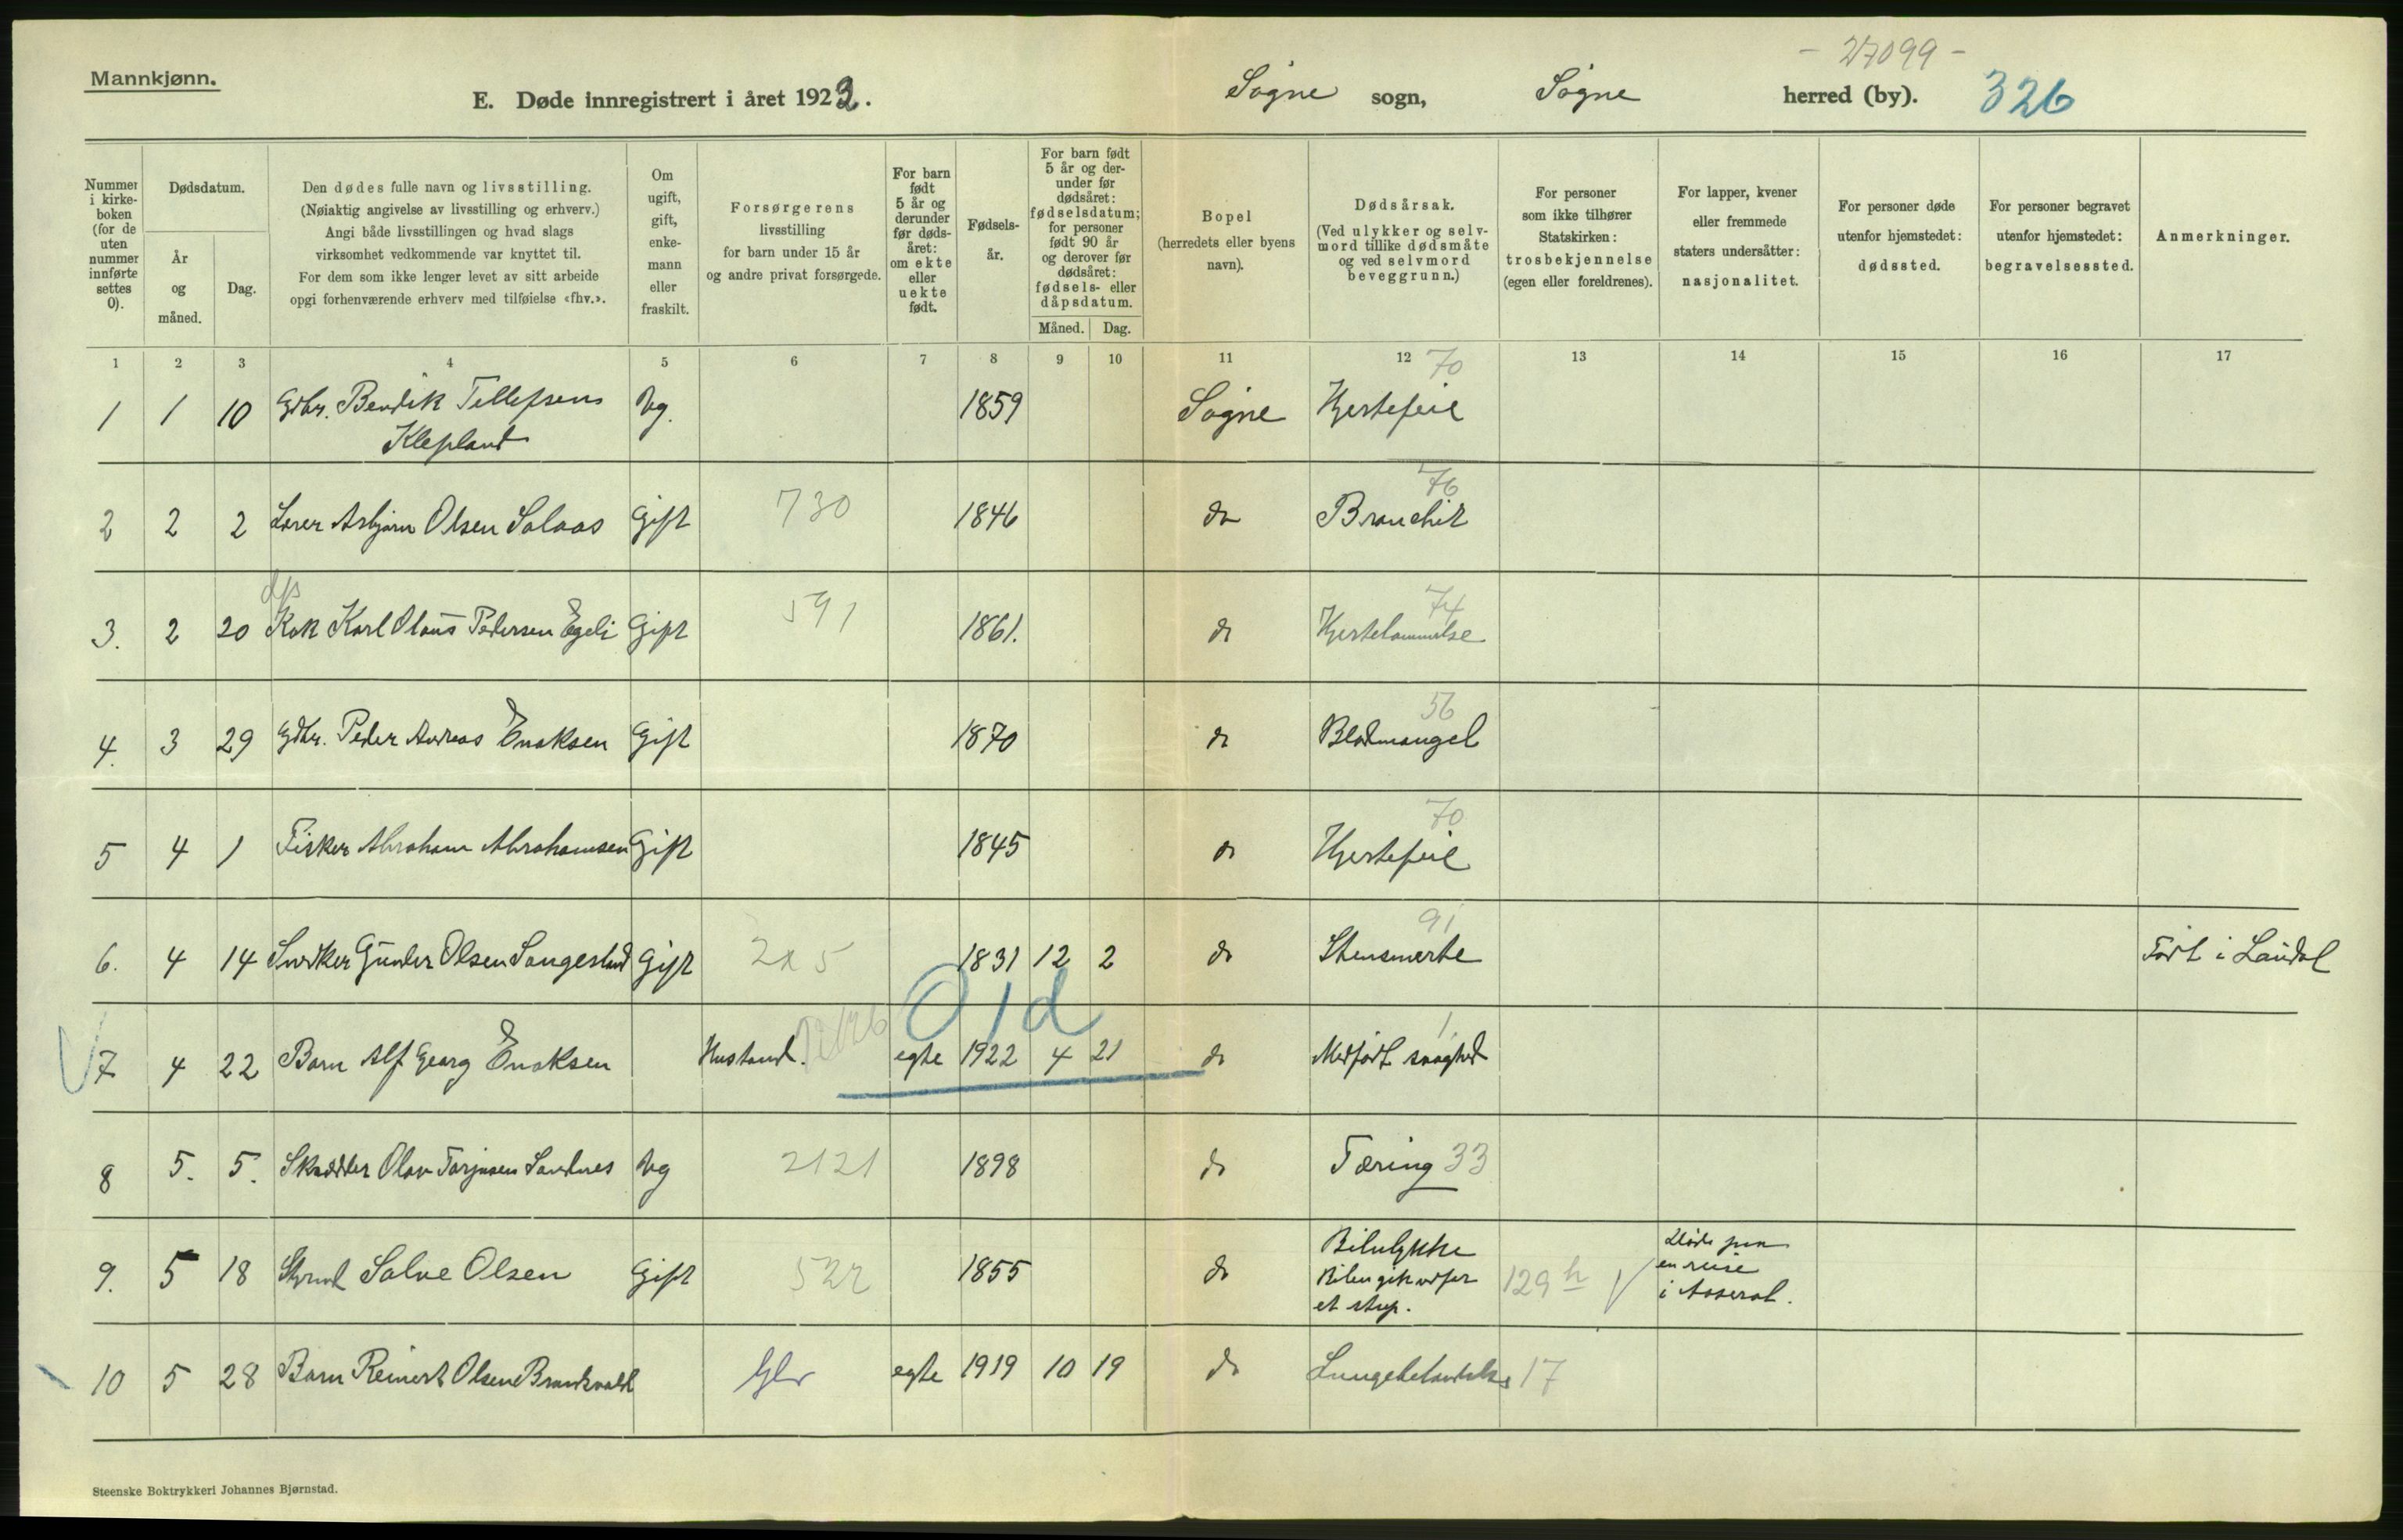 - 27099 -
Mannkjønn.
E. Døde innregistrert i året 1922. Søgne sogn, Søgne herred (by). 326
Nummer i kirkeboken (for de uten nummer innførte settes 0).
Dødsdatum.
År og måned.
Dag.
Den dødes fulle navn og livsstilling.
(Nøiaktig angivelse av livsstilling og erhverv.)
Angi både livsstillingen og hvad slags
virksomhet vedkommende var knyttet til.
For dem som ikke lenger levet av sitt arbeide
opgi forhenværende erhverv med tilføielse «fhv.».
Om ugift, gift, enkemann eller fraskilt.
Forsørgerens livsstilling
for barn under 15 år
og andre privat forsørgede.
For barn født 5 år og derunder før dødsåret: om ekte eller uekte født.
Fødselsår.
For barn født 5 år og derunder før dødsåret: fødselsdatum; for personer født 90 år og derover før dødsåret: fødsels- eller dåpsdatum.
Måned. Dag.
Bopel
(herredets eller byens navn).
Dødsårsak.
(Ved ulykker og selvmord tillike dødsmåte og ved selvmord beveggrunn.)
For personer som ikke tilhører Statskirken: trosbekjennelse (egen eller foreldrenes).
For lapper, kvener eller fremmede staters undersåtter: nasjonalitet.
For personer døde utenfor hjemstedet: dødssted.
For personer begravet utenfor hjemstedet: begravelsessted.
Anmerkninger.
1 2 3 4 5 6 7 8 9 10 11 12 13 14 15 16 17
70
1 1 10 Gdbr. Bendik Tellefsens Ug. 1859 Søgne Hjertefeil
Klepland
76
2 2 2 Lærer Asbjørn Olsen Solaas Gift 730 1846 do Bronchit
74
3. 2 20 Kok Karl Olaus Pedersen Egeli Gift 591 1861. do Hjertelammelse
56
4. 3 29 Gdbr. Peder Andreas Enoksen Gift 1870 do Blodmangel
70
5 4 1 Fisker Abraham Abrahamsen Gift 1845 do Hjertefeil
91
6. 4 14 Snedker Gunder Olsen Langeland Gift 2x5 1831 12 2 do Stensmerte Født i Laudal
0 1d
1
7 4 22 Barn Alf Georg Enoksen egte 1922 4 21 do Medfødt svaghed
8 5. 5. Skrædder Olav Torjusen Sandnes Ug 2121 1898 do Tæring 33
9. 5 18 Styrmd Salve Olsen Gift 522 1855 do Bilulykke 129 h Døde paa
Bilen gik udfor en reise
et stup. i Aaseral.
10 5 28 Barn Reinert Olsen Brandsvold Gbr egte 1919 10 19 do Lungebetændelse 17
Steenske Boktrykkeri Johannes Bjørnstad.